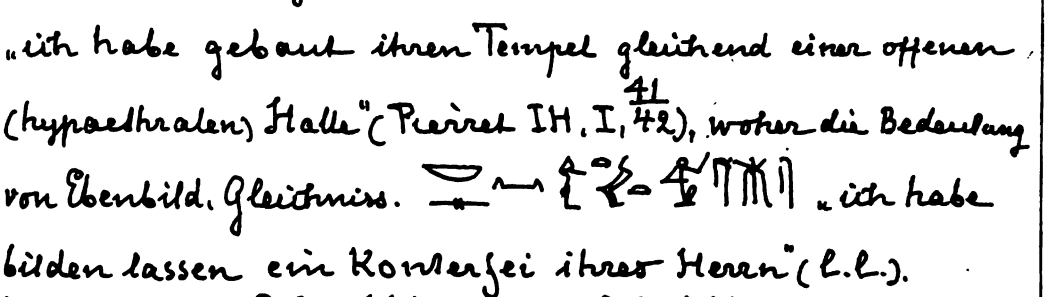 „ich habe gebaut ihren Tempel gleichend einer offenen
(hypaethralen) Halle" (Pierret IH, I, 41/42), woher die Bedeutung
von Ebenbild, Gleichniss. „ich habe
bilden lassen ein Konterfei ihres Herrn" (l.l.).